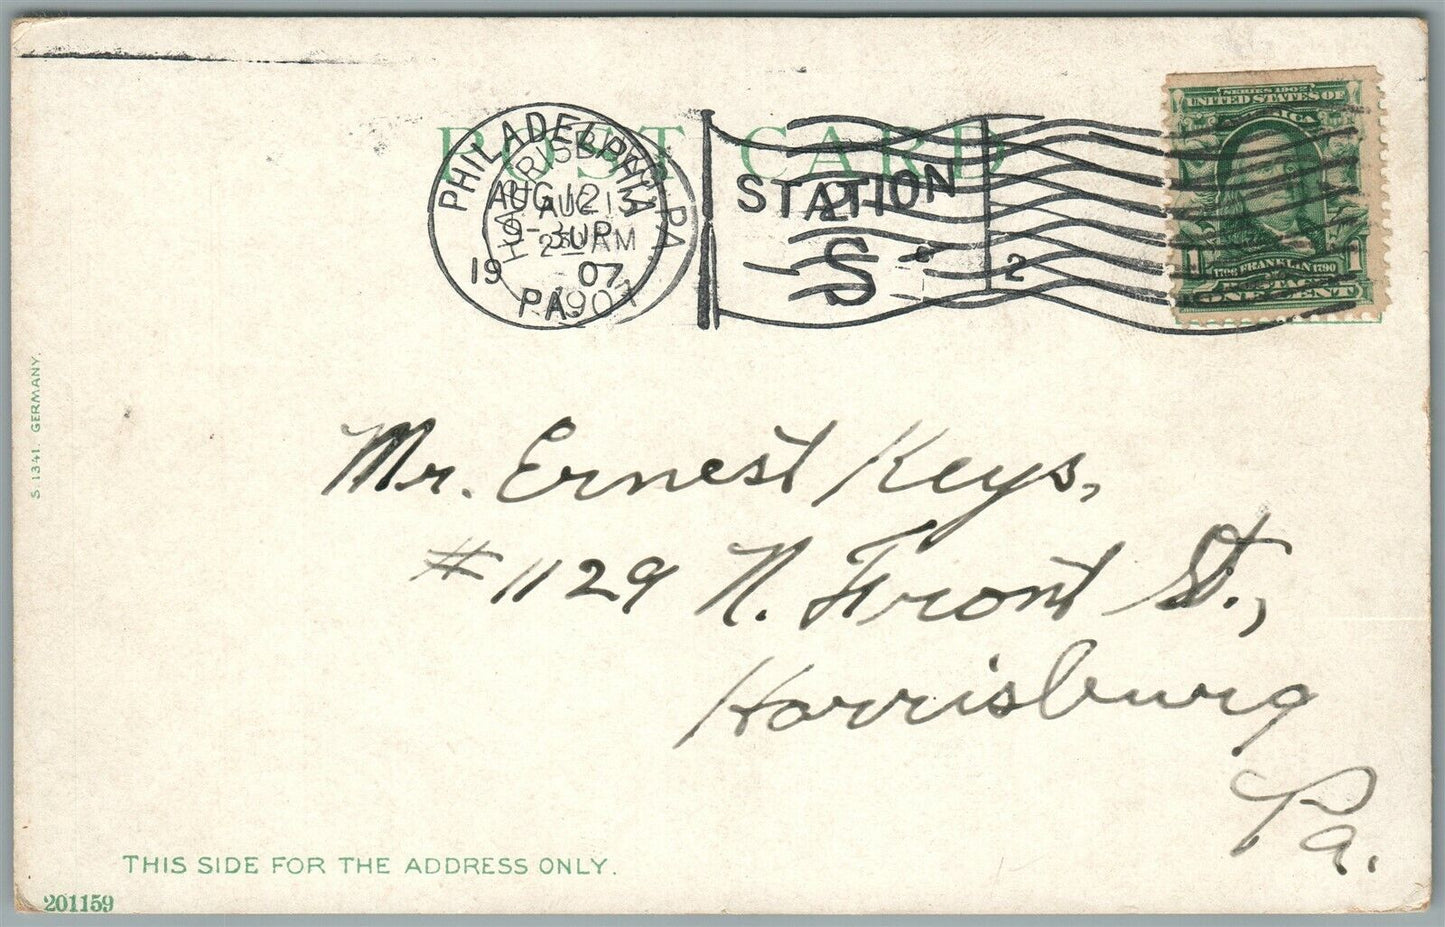 POST CARD
PHILADELPHIA
AUG 12
9-30P
1907
PA.
HARRISBURG, PA.
AUG 13
AM
1907
STATION
S
2
SERIES 1902
UNITED STATES OF
AMERICA
1 1
1706 FRANKLIN 1790
POSTAGE
ONE CENT
S 1341. GERMANY.
Mr. Ernest Keys,
#1129 N. Front St.,
Harrisburg
Pa.
THIS SIDE FOR THE ADDRESS ONLY.
201159